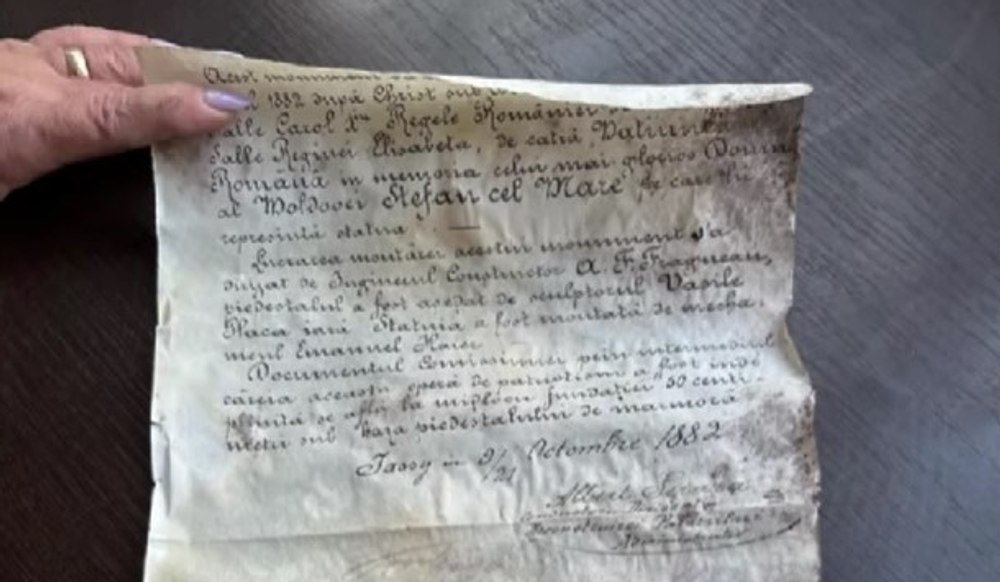 Acest monument
1882 după Christ sub
salle Carol Iiu Regele României
salle Reginei Elisaveta, de catră Națiunea
Română in memoria celui mai glorios Domn
al Moldovei Stefan cel Mare pe care
represintă statua
Lucrarea montărei acestui monument s'a
dirijat de Inginerul Constructor A. F. Fragnean,
piedestalul a fost așeḍat de sculptorul Vasile
Placa iară Statuia a fost montată de mecha-
nicul Emanuel
Documentul Comissiunei prin intermediul
cărera aceasta operă de patriotism a fost înde-
plinită se află la mijlocul fundației 50 centi-
metri sub baza piedestalului de marmoră
Jassy in 9/21 Octombre 1882
Albert